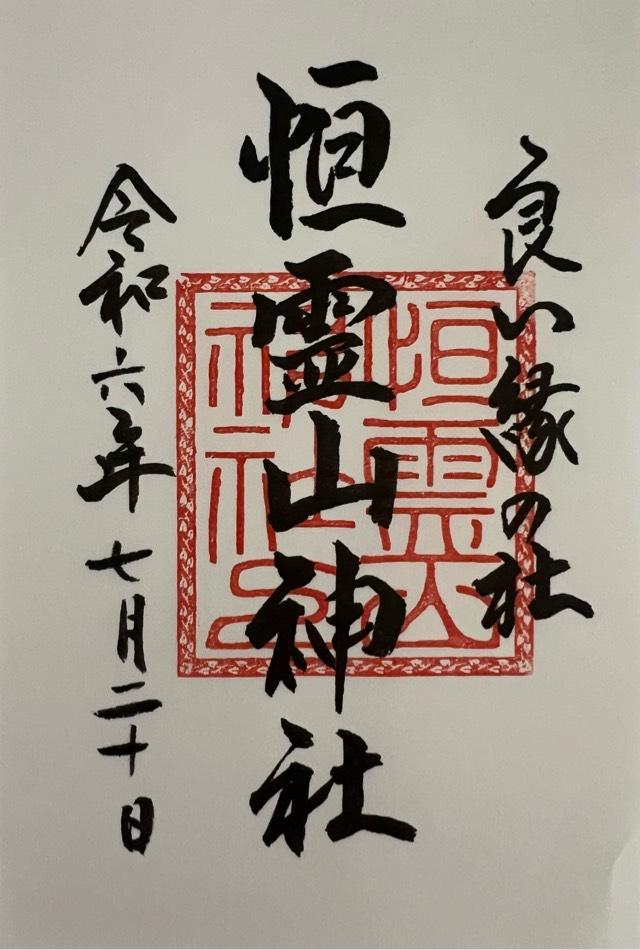 良い縁の社
恒霊山神社
令和六年七月二十日
恒霊山
神社印